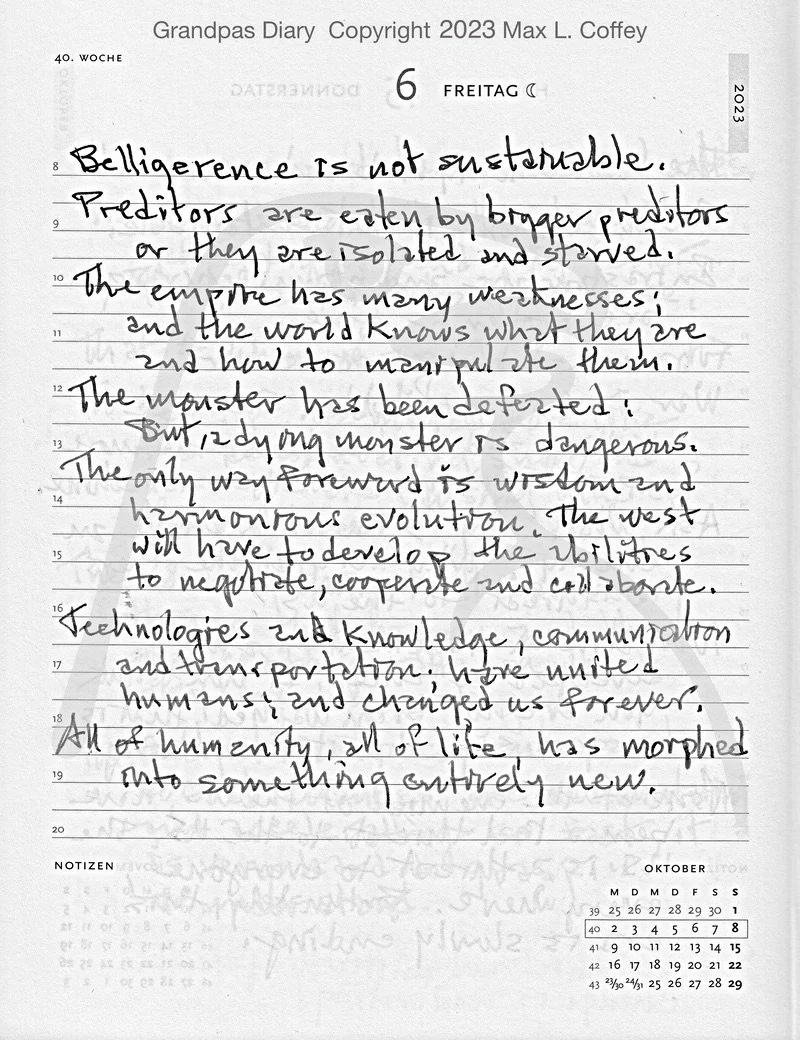 Grandpas Diary Copyright 2023 Max L. Coffey
40. WOCHE
6 FREITAG ☾
2023
8 Belligerence is not sustainable.
Preditors are eaten by bigger preditors
9
or they are isolated and starved.
10 The empire has many weaknesses;
11 and the world knows what they are
and how to manipulate them.
12 The monster has been defeated;
13 But, a dying monster is dangerous.
The only way foreward is wisdom and
14 harmonious evolution. The west
15 will have to develop the abilities
to negotiate, cooperate and collaborate.
16 Technologies and knowledge, communication
17 and transportation; have united
humans; and changed us forever.
18 All of humanity, all of life, has morphed
19 into something entirely new.
20
NOTIZEN
OKTOBER
M D M D F S S
39 25 26 27 28 29 30 1
40 2 3 4 5 6 7 8
41 9 10 11 12 13 14 15
42 16 17 18 19 20 21 22
43 23/30 24/31 25 26 27 28 29